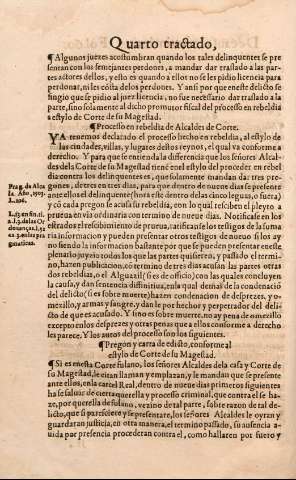 Quarto tractado,
¶Algunos juezes acostumbran quando los tales delinquentes se pre
sentan con los semejantes perdones, a mandar dar traslado a las par
tes actores dellos, y esto es quando a ellos no se les pidio licencia para
perdonar, ni les costa delos perdones. Y ansi por que neste delicto se
fingio que se pidio al juez licencia, no fue necessario dar traslado a la
parte, sino solamente al dicho promutor fiscal del processo en rebeldia
a estylo de Corte de su Magestad.
¶Processo en rebeldia de Alcaldes de Corte.
YA tenemos declarado el processo hecho en rebeldia, al estylo de
las ciudades, villas, y lugares destos reynos, el qual va conforme a
derecho. Y para que se entienda la differencia que los señores Alcal-
des dela Corte de su Magestad tienē con el estylo del proceder en rebel
dia contra los delinquentes es, que solamente mandan dar tres pre
gones, de tres en tres dias, para que dentro de nueue dias se presente
ante ellos el delinquente (hora este dentro delas cinco leguas, o fuera)
y cō cada pregon se acusa su rebeldia, con lo qual resciben el pleyto a
prueua en via ordinaria con termino de nueue dias. Notificase en los
estrados el rescibimiento de prueua, ratificanse los testigos de la suma
ria informacion y pueden presentar otros testigos de nueuo si los ay
no siendo la informacion bastante por que se pueden presentar eneste
plenario juyzio todos los que las partes quisieren, y passado el termi-
no, hazen publicacion, cō termino de tres dias acusan las partes otras
dos rebeldias, o el Alguazil (si es de officio) con las quales concluyen
la causa, y dan sentencia diffinitiua, enla qual demas de la condenaciō
del delicto (si es sobre muerte) hazen condenacion de desprezes, y o-
mezillo, y armas y sangre, y dan le por hechor y perpetrador del deli-
cto de que es acusado. Y sino es sobre muerte, no ay pena de omezillo
excepto en los desprezes y otras penas que a ellos conforme a derecho
les parece. Y los autos del processo son los siguientes.
¶Pregon y carta de edicto, conforme al
estylo de Corte de su Magestad.
¶Si es enesta Corte fulano, los señores Alcaldes dela casa y Corte de
su Magestad, le citan llaman y emplazan, y le mandan que se presente
ante ellos, en la carcel Real, dentro de nueue dias primeros siguientes
ha se saluar de cierta querella y processo criminal, que contra el se ha-
ze, por querella de fulano, vezino de tal parte, sobre razon de tal de-
licto, que si paresciere y se presentare, los señores Alcaldes le oyran y
guardaran justicia, en otra manera, el termino passado, su ausencia a-
uida por presencia procederan contra el, como hallaren por fuero y
Prag. de Alca
la. Año, 1503
L. 206.